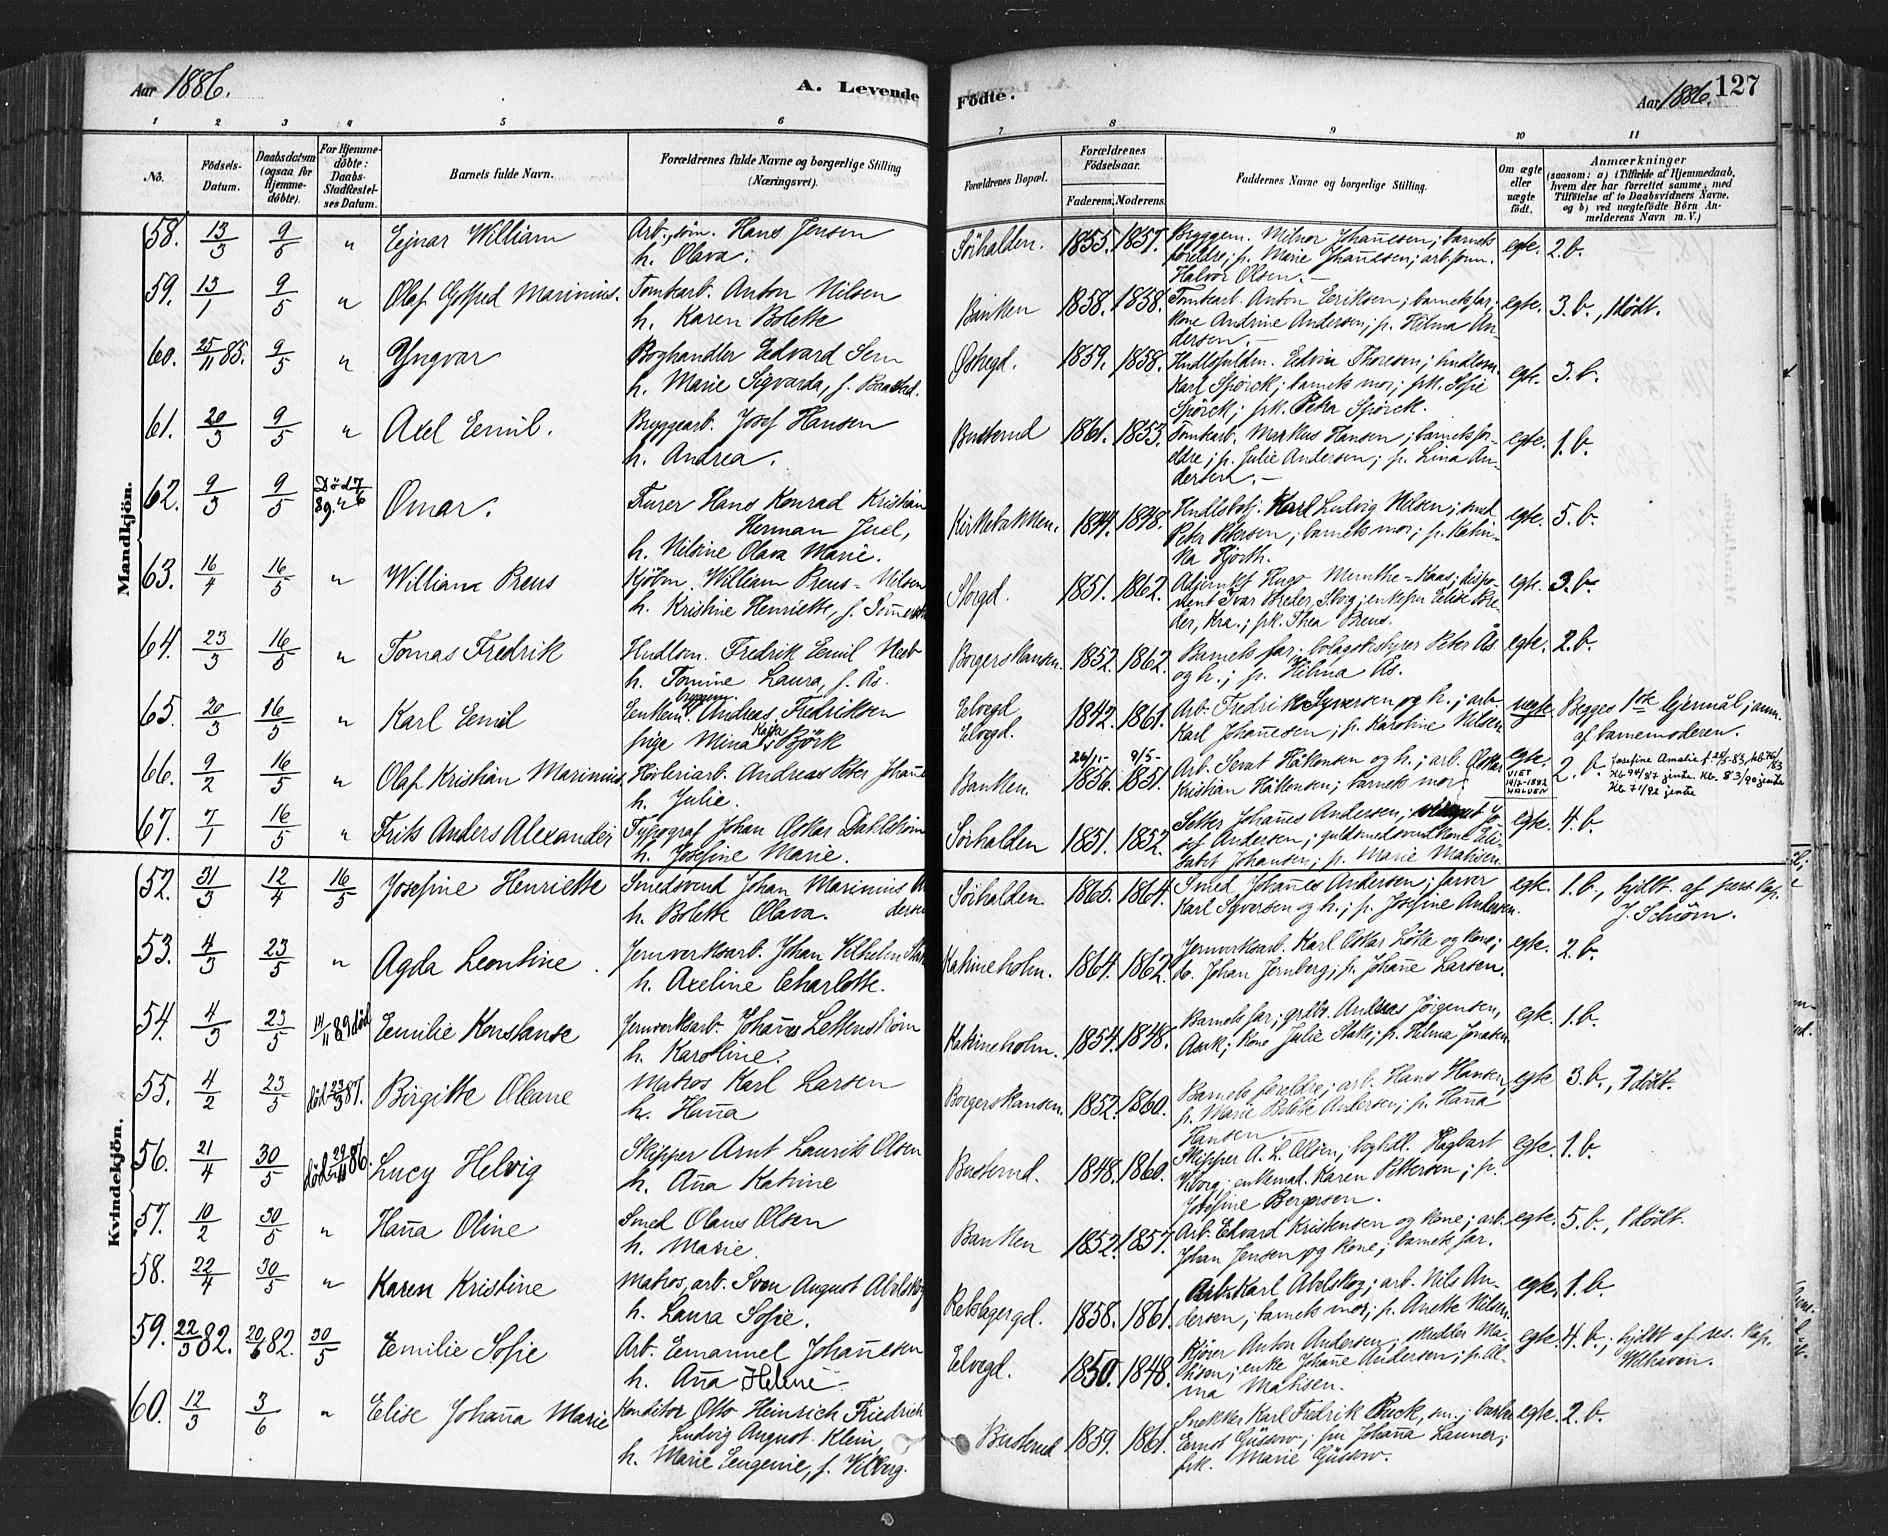 Aar 1886.
A. Levende Födte.
Aar 1886.
127
1 2 3 4 5 6 7 8 9 10 11
No.
Födsels-Datum.
Daabsdatum (ogsaa for Hjemmedöbte).
For Hjemmedöbte: Daabs-Stadfestelses Datum.
Barnets fulde Navn.
Forældrenes fulde Navne og borgerlige Stilling (Næringsvei).
Forældrenes Bopæl.
Forældrenes Födselsaar.
Faderens. Moderens.
Faddernes Navne og borgerlige Stilling.
Om ægte eller uægte födt.
Anmærkninger
(saasom: a) i Tilfælde af Hjemmedaab,
hvem der har forrettet samme, med
Tilföielse af to Daabsvidners Navne,
og b) ved uægtefödte Börn Anmelderens Navn m. V.)
Mandkjön.
58. 13/3 9/5 " Ejnar William
Arb., söm. Hans Jensen
h. Olava.
Sörhalden. 1855. 1857.
Halvor Olsen.
egte. 2. b.
59. 13/1 9/5 " Olaf Gotfred Marinius.
Tomtearb. Anton Nilsen
h. Karen Bolette
Banken 1858. 1858.
Tomtearb. Anton Eriksen; barnets far;
kone Andrine Andersen; p. Hilma Andersen.
egte. 3. b., 1 dödt.
60. 25/11 85. 9/5 " Yngvar
Boghandler Edvard Sem
h. Marie Sigvarda, f.
Östregd. 1859. 1858.
Karl Spörck; barnets mor; frk. Sofie
Spörck; frk. Petra Spörck.
egt. 3. b.
61. 20/3 9/5 " Axel Emil.
Bryggearb. Josef Hansen
h. Andrea.
Busterud 1861. 1853.
Tomtearb. Markus Hansen; barnets forældre; p. Julie Andersen; p. Lina Andersen.
egte. 1. b.
62. 9/3 9/5 Död 7/6 89. " Omar.
Furer Hans Konrad Kristian
Herman Juel,
h. Nilsine Olava Marie.
Kirkebakken. 1844. 1848.
Hndlsbetj. Karl Ludvig Nilsen; smed
Peter Petersen; barnets mor; p. Katinka Hjorth.
egte. 5. b.
63. 16/4 16/5 " William Preus
Kjöbm. William Preus-Nilsen
h. Kristine Henriette, f.
Storgd. 1851. 1862.
Adjunkt Hugo Munthe-Kaas; disponent Ivar Breder, Sborg; enkefru Elise Breder, Kra.; frk. Thea Preus.
egte. 3. b.
64. 23/3 16/5 " Tomas Fredrik
Hndlsm. Fredrik Emil
h. Tomine Laura, f. Ås.
Borgerskansen. 1852. 1862.
Barnets far; bolagsbstyrer Peter Ås
og h.; p. Hilma Ås.
egte. 2. b.
65. 20/3 16/5 " Karl Emil
Enkem. bryggem. Andreas Fredriksen
pige Mina Kajsa Björk
Elvegd
Elvegd. 1842. 1861.
Arb. Fredrik Syversen og h.; arb.
Karl Johanesen; p. Karoline Nilsen.
uegte. Begges 1ste lejermål; anm.
af barnemoderen.
66. 9/2 16/5 " Olaf Kristian Marinius
Höveriarb. Andreas Peter Johan
h. Julie.
Banken. 26/11- 1856. 9/5- 1851.
Arb. Serat Håkonsen og h.; arb. Oskar
Kristian Håkonsen; barnets mor.
egte. VIET 14/7-1882 HALDEN
2. b.
67. 7/1 16/5 " Frits Anders Alexander
Typograf Johan Oskar Dahlström
h. Josefine Marie.
Sörhalden 1851. 1852.
Setter Johanes Andersen; Josef Andersen; guldsmedsvend kone Elisabet Johansen; p. Marie Matisen.
egte. 4. b.
Kvindekjön.
52. 31/3 12/4 16/5 Josefine Henriette
Smedsvend Johan Marinius Andersen
h. Bolette Olava.
Sörhalden. 1865. 1864.
Smed Johanes Andersen; farver
Karl Syversen og h.; p. Josefine Andersen.
egte. 1. b., hjdbt. af pers. kap.
J. Schiörn.
53. 4/3 23/5 " Agda Leontine
Jernverksarb. Johan Vilhelm
h. Axeline Charlotte.
Katrineholm. 1864. 1862.
Jernverksarb. Karl Oskar Löke og kone;
do. Johan Jernberg; p. Johane Larsen.
egte. 2. b.
54. 4/3 23/5 14/11 89 död Emilie Konstanse
Jernverksarb. Johanes Lettenström
h. Karoline.
Katrineholm. 1854. 1848.
Barnets far; grdbr. Andreas Jörgensen,
Aark; kone Julie Stake; p. Hilma Jonasen.
egte. 1. b.
55. 4/2 23/5 död 23/3 87. Birgitte Oleane
Matros Karl Larsen
h. Hana
Borgerskansen. 1852. 1860.
Barnets foreldre; arb. Hans Hansen,
p. Marie Bolette Andersen; p. Hana
Hansen
egte 3. b., 1 dödt.
56. 21/4 30/5 död 29/11 86. Lucy Helvig
Skipper Arnt Laurits Olsen
h. Ana Katrine
Busterud. 1848. 1860.
Skipper A. L. Olsen; boghdl. Hagbart
Viborg; enkemad. Karen Pettersen; p.
Josefine Bergersen.
egte. 1. b.
57. 10/2 30/5 " Hana Oline
Smed Olaus Olsen
h. Marie.
Banken 1852. 1857.
Arb. Edvard Kristensen og kone; arb.
Johan Jensen og kone; barnets far.
egte. 5. b., 1 dödt.
58. 22/4 30/5 " Karen Kristine
Matros, arb. Sven August Abelskog
h. Laura Sofie.
Rebslagergd. 1858. 1861.
Arb. Karl Abelskog; arb. Nils Andersen; barnets mor; p. Anette Nilsen.
egte. 1. b.
59. 22/3 82. 20/6 82. 30/5 Emilie Sofie
Arb. Emanuel Johanesen
h. Ana Helene
Elvegd. 1850. 1848.
Kjörer Anton Andersen; skredder Matisen; enke Johane Andersen; p. Alma Matisen.
egte. 4. b.; hjdbt af res. kap.
Wilhaven.
60. 12/3 3/6 " Elise Johana Marie
Konditor Otto Heinrich Friedrich
Ludvig August Klein,
h. Marie Eugenie, f. Vilberg.
Busterud 1859. 1861.
Snekker Karl Fredrik Puck, sm.; barber
Ernst Güssow; fru Johana Launer;
frk. Marie Güssow.
egte. 2. b.